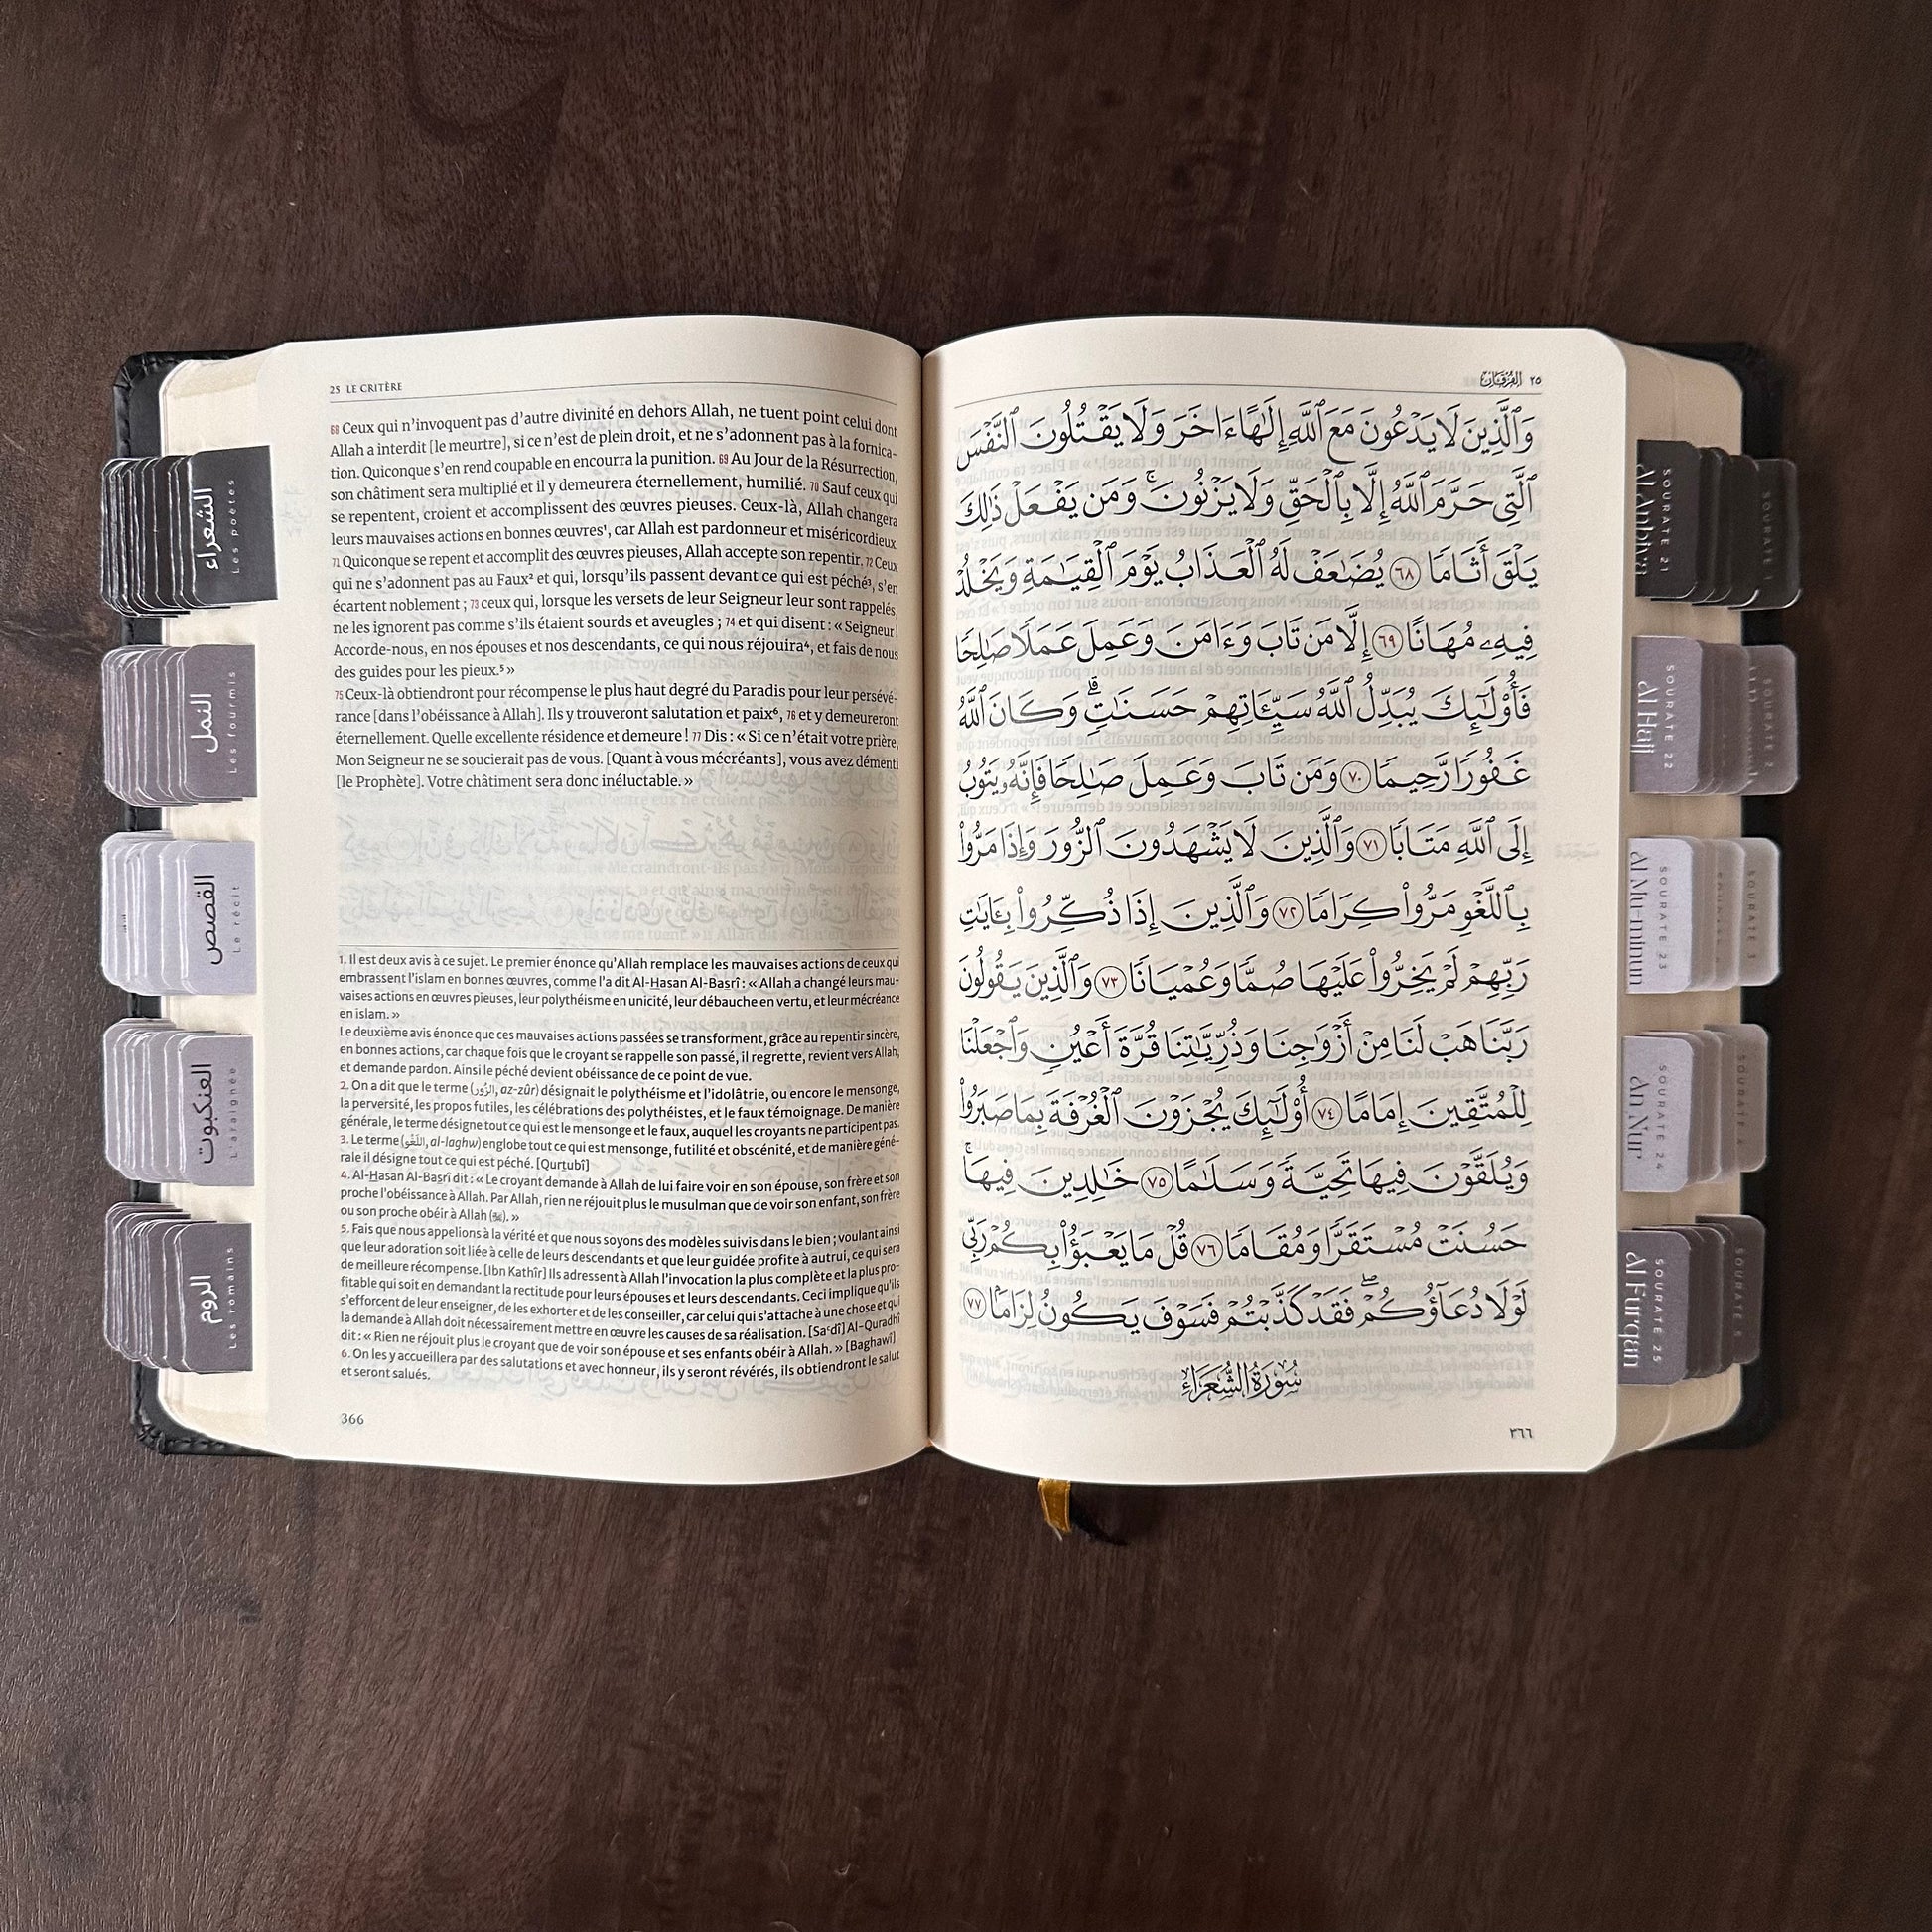 25 LE CRITÈRE
68 Ceux qui n’invoquent pas d’autre divinité en dehors Allah, ne tuent point celui dont
Allah a interdit [le meurtre], si ce n’est de plein droit, et ne s’adonnent pas à la fornica-
tion. Quiconque s’en rend coupable en encourra la punition. 69 Au Jour de la Résurrection,
son châtiment sera multiplié et il y demeurera éternellement, humilié. 70 Sauf ceux qui
se repentent, croient et accomplissent des œuvres pieuses. Ceux-là, Allah changera
leurs mauvaises actions en bonnes œuvres¹, car Allah est pardonneur et miséricordieux.
71 Quiconque se repent et accomplit des œuvres pieuses, Allah accepte son repentir. 72 Ceux
qui ne s’adonnent pas au Faux² et qui, lorsqu’ils passent devant ce qui est péché³, s’en
écartent noblement ; 73 ceux qui, lorsque les versets de leur Seigneur leur sont rappelés,
ne les ignorent pas comme s’ils étaient sourds et aveugles ; 74 et qui disent : « Seigneur !
Accorde-nous, en nos épouses et nos descendants, ce qui nous réjouira⁴, et fais de nous
des guides pour les pieux.⁵ »
75 Ceux-là obtiendront pour récompense le plus haut degré du Paradis pour leur persévé-
rance [dans l’obéissance à Allah]. Ils y trouveront salutation et paix⁶, 76 et y demeureront
éternellement. Quelle excellente résidence et demeure ! 77 Dis : « Si ce n’était votre prière,
Mon Seigneur ne se soucierait pas de vous. [Quant à vous mécréants], vous avez démenti
[le Prophète]. Votre châtiment sera donc inéluctable. »
1. Il est deux avis à ce sujet. Le premier énonce qu’Allah remplace les mauvaises actions de ceux qui
embrassent l’islam en bonnes œuvres, comme l’a dit Al-Hasan Al-Basrî : « Allah a changé leurs mau-
vaises actions en œuvres pieuses, leur polythéisme en unicité, leur débauche en vertu, et leur mécréance
en islam. »
Le deuxième avis énonce que ces mauvaises actions passées se transforment, grâce au repentir sincère,
en bonnes actions, car chaque fois que le croyant se rappelle son passé, il regrette, revient vers Allah,
et demande pardon. Ainsi le péché devient obéissance de ce point de vue.
2. On a dit que le terme (الزُّور, az-zûr) désignait le polythéisme et l’idolâtrie, ou encore le mensonge,
la perversité, les propos futiles, les célébrations des polythéistes, et le faux témoignage. De manière
générale, le terme désigne tout ce qui est le mensonge et le faux, auquel les croyants ne participent pas.
3. Le terme (اللَّغْو, al-laghw) englobe tout ce qui est mensonge, futilité et obscénité, et de manière géné-
rale il désigne tout ce qui est péché. [Qurtubî]
4. Al-Hasan Al-Basrî dit : « Le croyant demande à Allah de lui faire voir en son épouse, son frère et son
proche l’obéissance à Allah. Par Allah, rien ne réjouit plus le musulman que de voir son enfant, son frère
ou son proche obéir à Allah (ﷻ). »
5. Fais que nous appelions à la vérité et que nous soyons des modèles suivis dans le bien ; voulant ainsi
que leur adoration soit liée à celle de leurs descendants et que leur guidée profite à autrui, ce qui sera
de meilleure récompense. [Ibn Kathîr] Ils adressent à Allah l’invocation la plus complète et la plus pro-
fitable qui soit en demandant la rectitude pour leurs épouses et leurs descendants. Ceci implique qu’ils
s’efforcent de leur enseigner, de les exhorter et de les conseiller, car celui qui s’attache à une chose et qui
la demande à Allah doit nécessairement mettre en œuvre les causes de sa réalisation. [Saʿdî] Al-Quradhî
dit : « Rien ne réjouit plus le croyant que de voir son épouse et ses enfants obéir à Allah. » [Baghawî]
6. On les y accueillera par des salutations et avec honneur, ils y seront révérés, ils obtiendront le salut
et seront salués.
366
٢٥ الفُرْقَان
وَٱلَّذِينَ لَا يَدْعُونَ مَعَ ٱللَّهِ إِلَٰهًا ءَاخَرَ وَلَا يَقْتُلُونَ ٱلنَّفْسَ
ٱلَّتِى حَرَّمَ ٱللَّهُ إِلَّا بِٱلْحَقِّ وَلَا يَزْنُونَ ۚ وَمَن يَفْعَلْ ذَٰلِكَ
يَلْقَ أَثَامًا ٦٨ يُضَٰعَفْ لَهُ ٱلْعَذَابُ يَوْمَ ٱلْقِيَٰمَةِ وَيَخْلُدْ
فِيهِۦ مُهَانًا ٦٩ إِلَّا مَن تَابَ وَءَامَنَ وَعَمِلَ عَمَلًا صَٰلِحًا
فَأُو۟لَٰٓئِكَ يُبَدِّلُ ٱللَّهُ سَيِّـَٔاتِهِمْ حَسَنَٰتٍ ۗ وَكَانَ ٱللَّهُ
غَفُورًا رَّحِيمًا ٧٠ وَمَن تَابَ وَعَمِلَ صَٰلِحًا فَإِنَّهُۥ يَتُوبُ
إِلَى ٱللَّهِ مَتَابًا ٧١ وَٱلَّذِينَ لَا يَشْهَدُونَ ٱلزُّورَ وَإِذَا مَرُّوا۟
بِٱللَّغْوِ مَرُّوا۟ كِرَامًا ٧٢ وَٱلَّذِينَ إِذَا ذُكِّرُوا۟ بِـَٔايَٰتِ
رَبِّهِمْ لَمْ يَخِرُّوا۟ عَلَيْهَا صُمًّا وَعُمْيَانًا ٧٣ وَٱلَّذِينَ يَقُولُونَ
رَبَّنَا هَبْ لَنَا مِنْ أَزْوَٰجِنَا وَذُرِّيَّٰتِنَا قُرَّةَ أَعْيُنٍ وَٱجْعَلْنَا
لِلْمُتَّقِينَ إِمَامًا ٧٤ أُو۟لَٰٓئِكَ يُجْزَوْنَ ٱلْغُرْفَةَ بِمَا صَبَرُوا۟
وَيُلَقَّوْنَ فِيهَا تَحِيَّةً وَسَلَٰمًا ٧٥ خَٰلِدِينَ فِيهَا ۚ
حَسُنَتْ مُسْتَقَرًّا وَمُقَامًا ٧٦ قُلْ مَا يَعْبَؤُا۟ بِكُمْ رَبِّى
لَوْلَا دُعَآؤُكُمْ ۖ فَقَدْ كَذَّبْتُمْ فَسَوْفَ يَكُونُ لِزَامًۢا ٧٧
سُورَةُ الشُّعَرَاءِ
٣٦٦
الشعراء
Les poètes
النمل
Les fourmis
القصص
Le récit
العنكبوت
L'araignée
الروم
Les romains
SOURATE 21
Al Anbiya
SOURATE 1
SOURATE 22
Al Hajj
SOURATE 2
SOURATE 23
Al Mu-minun
SOURATE 3
SOURATE 24
An Nur
SOURATE
SOURATE 25
Al Furqan
SOURATE